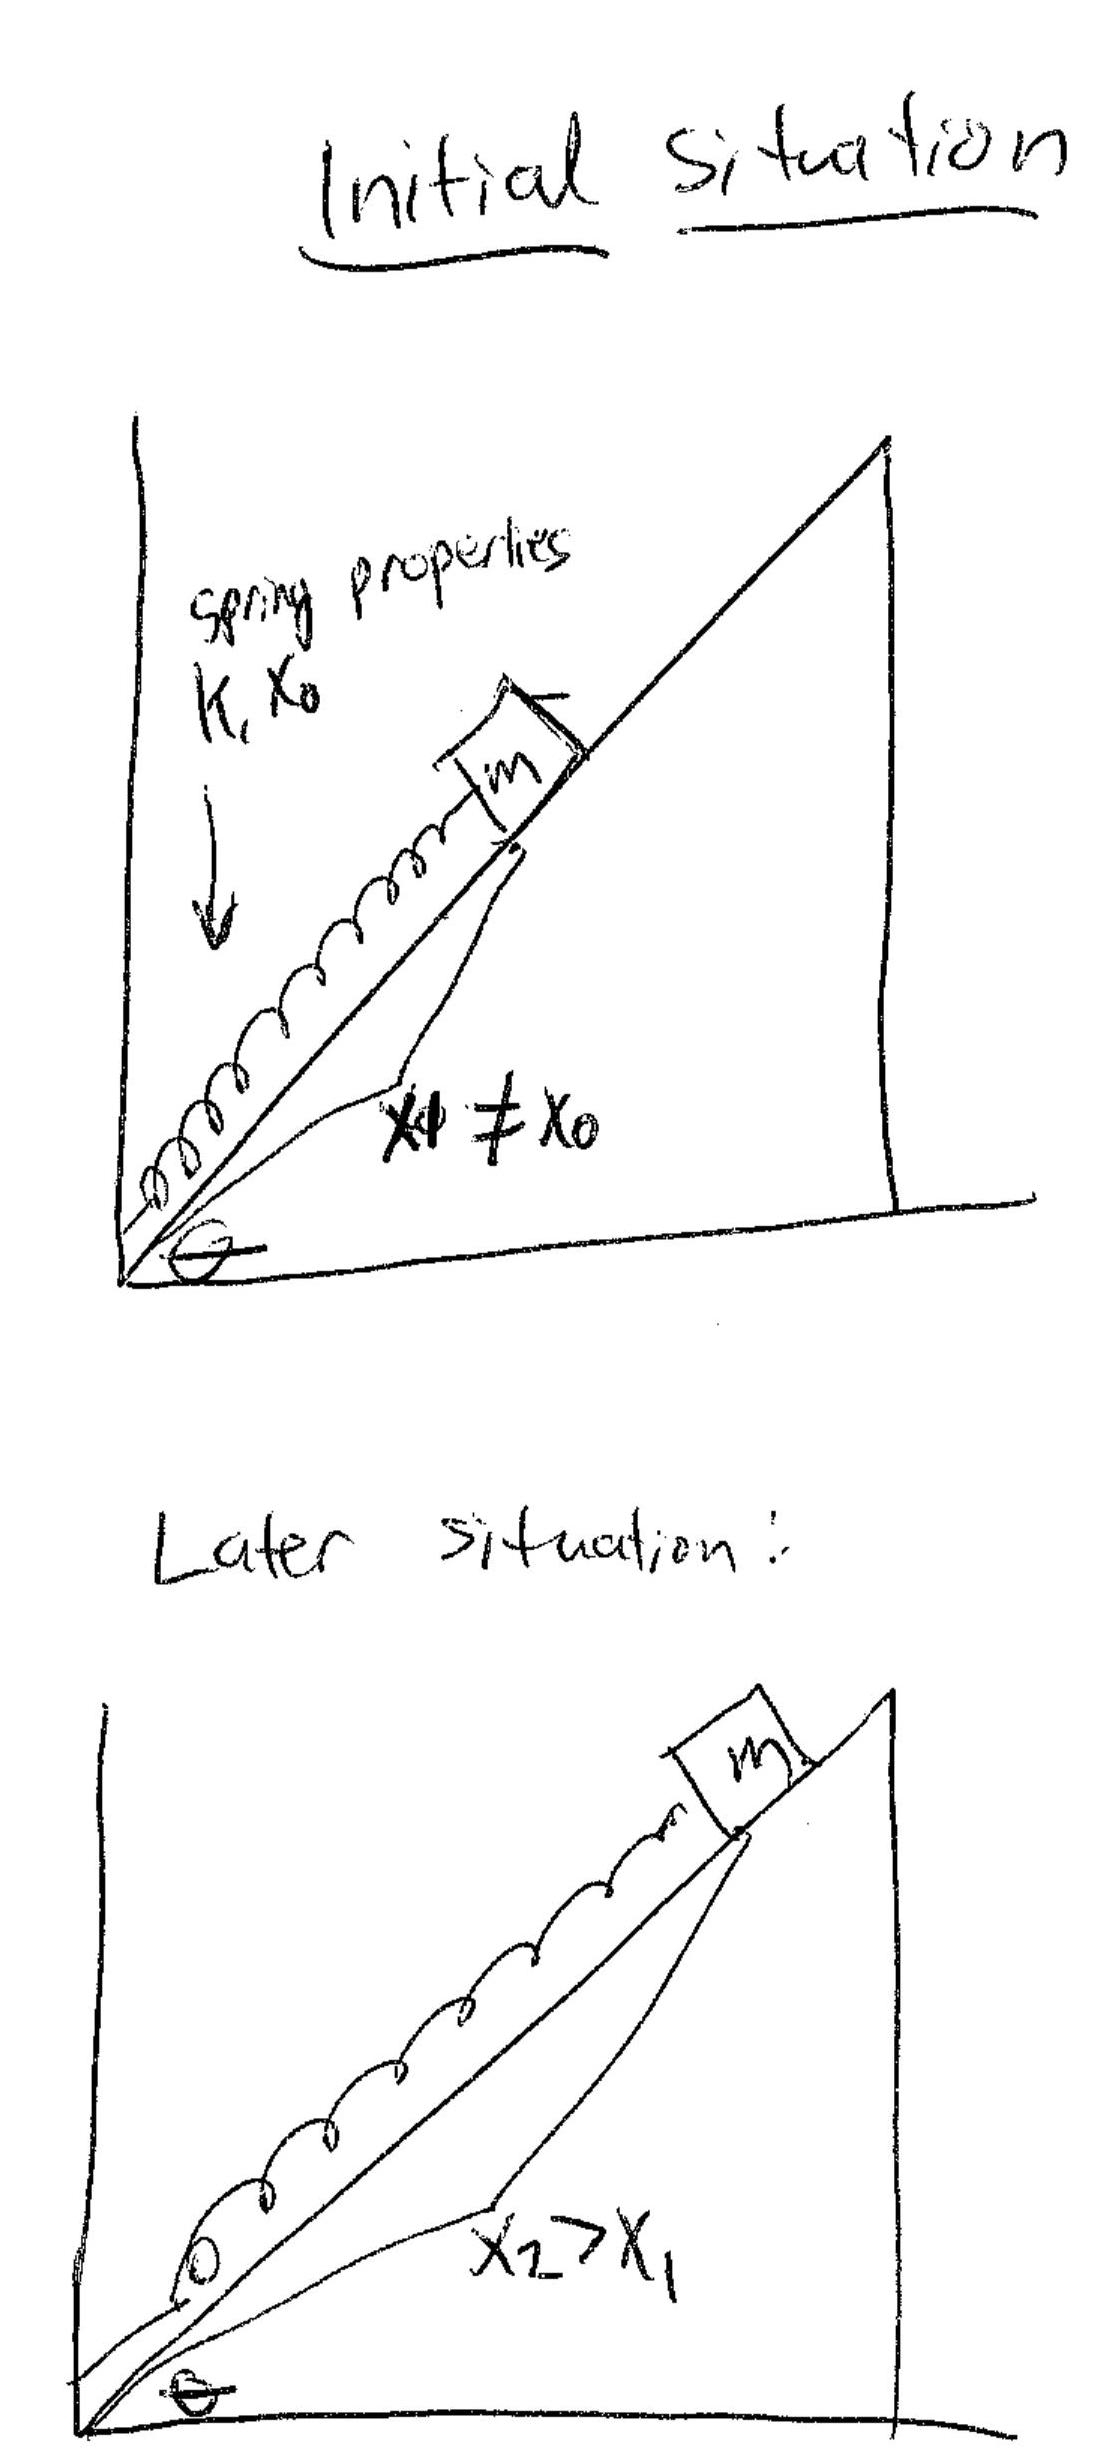 Initial situation
spring properties
K, x₀
m
x₁ ≠ x₀
θ
Later situation:
m
x₂ > x₁
θ